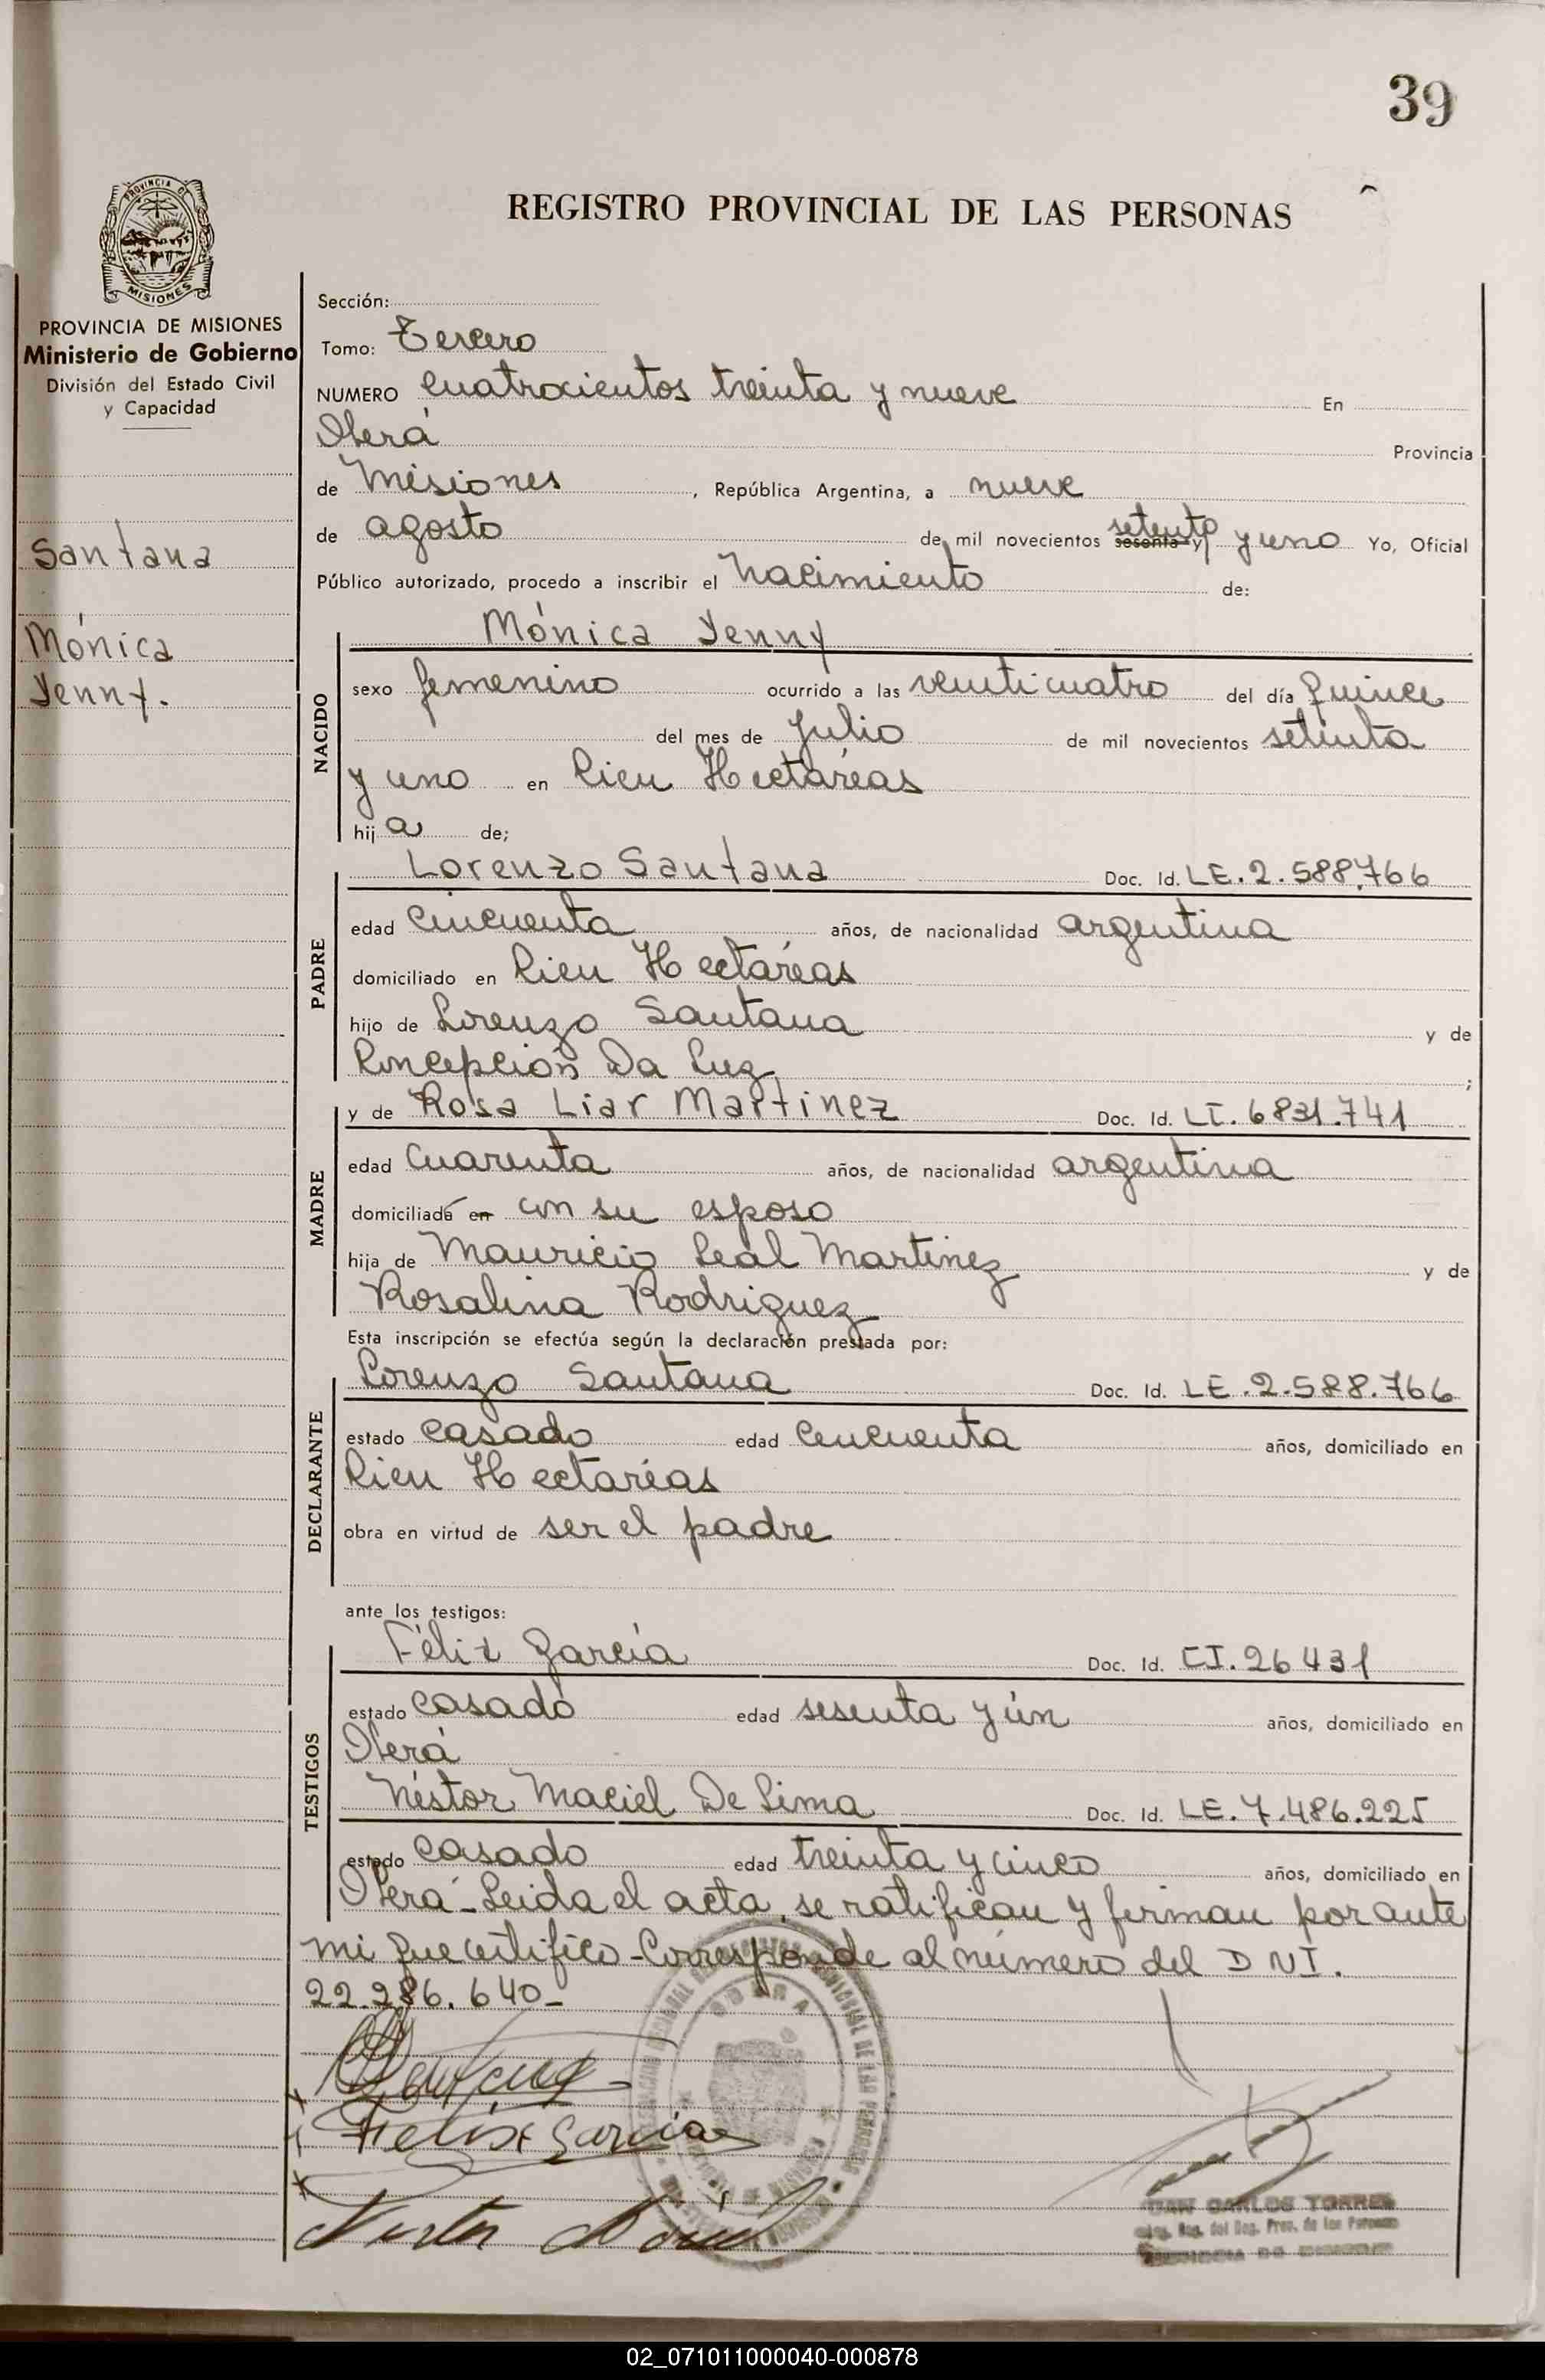 39
REGISTRO PROVINCIAL DE LAS PERSONAS
PROVINCIA DE
MISIONES
PROVINCIA DE MISIONES
Ministerio de Gobierno
División del Estado Civil
y Capacidad
Santana
Mónica
Yenny.
Sección:
Tomo: Tercero
NUMERO Cuatrocientos treinta y nueve En
Oberá Provincia
de Misiones, República Argentina, a nueve
de agosto de mil novecientos sesenta y setenta y uno Yo, Oficial
Público autorizado, procedo a inscribir el Nacimiento de:
Mónica Yenny
NACIDO
sexo femenino ocurrido a las veinticuatro del día quince
del mes de Julio de mil novecientos setenta
y uno en Cien Hectáreas
hija de;
Lorenzo Santana Doc. Id. LE. 2.588.766
PADRE
edad cincuenta años, de nacionalidad argentina
domiciliado en Cien Hectáreas
hijo de Lorenzo Santana y de
Concepción Da Luz ;
y de Rosa Liar Martinez Doc. Id. LC. 6831.741
MADRE
edad Cuarenta años, de nacionalidad argentina
domiciliada en con su esposo
hija de Mauricio Leal Martinez y de
Rosalina Rodriguez
Esta inscripción se efectúa según la declaración prestada por:
Lorenzo Santana Doc. Id. LE. 2.588.766
DECLARANTE
estado casado edad cincuenta años, domiciliado en
Cien Hectaréas
obra en virtud de ser el padre
ante los testigos:
Félix García Doc. Id. CI. 26431
TESTIGOS
estado casado edad sesenta y ún años, domiciliado en
Oberá
Néstor Maciel De Lima Doc. Id. LE. 7.486.225
estado casado edad treinta y cinco años, domiciliado en
Oberá - Leida el acta, se ratifican y firman por ante
mi que certifico - Corresponde al número del DNI.
22.286.640-
Santana
Felix Garcia
Nestor
JUAN CARLOS TORRES
02_071011000040-000878